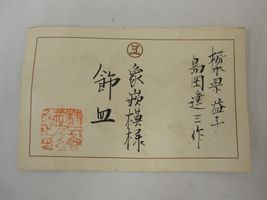 栃木県益子
島岡達三作
象嵌模様
飾皿